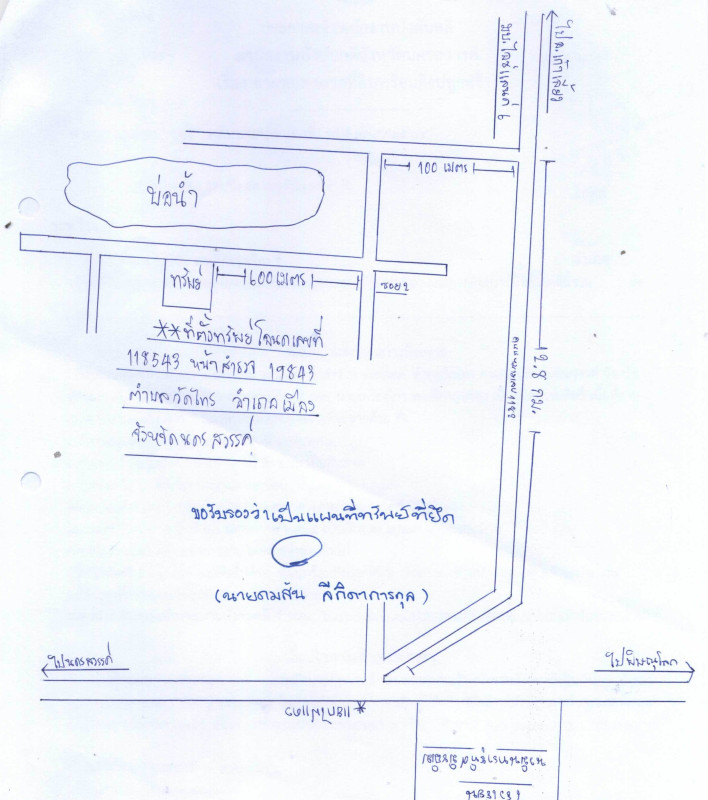 ไป อ.เก้าเลี้ยว
100 เมตร
บ่อน้ำ
ทรัพย์
600 เมตร
ซอย 2
**ที่ตั้งทรัพย์โฉนดเลขที่
118543 หน้าสำรวจ 19843
ตำบลวัดไทร อำเภอเมือง
จังหวัดนครสวรรค์
2.8 กม.
ขอรับรองว่าเป็นแผนที่ทรัพย์ที่ยึด
(นายคมสัน ลีกิตาการกุล)
ไปนครสวรรค์
ไปพิษณุโลก